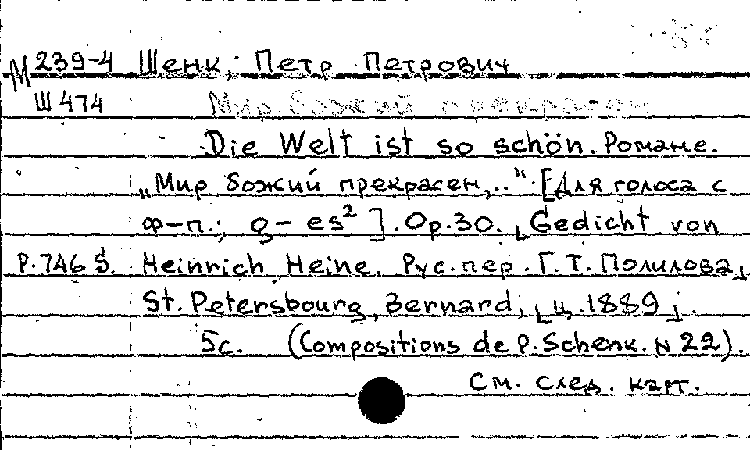 М 239-4 Шенк, Петр Петрович
Ш 474 Мир божий прекрасен
Die Welt ist so schön. Романс.
„Мир божий прекрасен,.." [Для голоса с
ф-п.; g - es² ]. Op. 30. [Gedicht von
P. 746 S. Heinrich Heine. Рус. пер. Г. Т. Полилова]
St. Petersbourg, Bernard, [ц. 1889].
5с. (Compositions de P. Schenk. N 22).
См. след. карт.